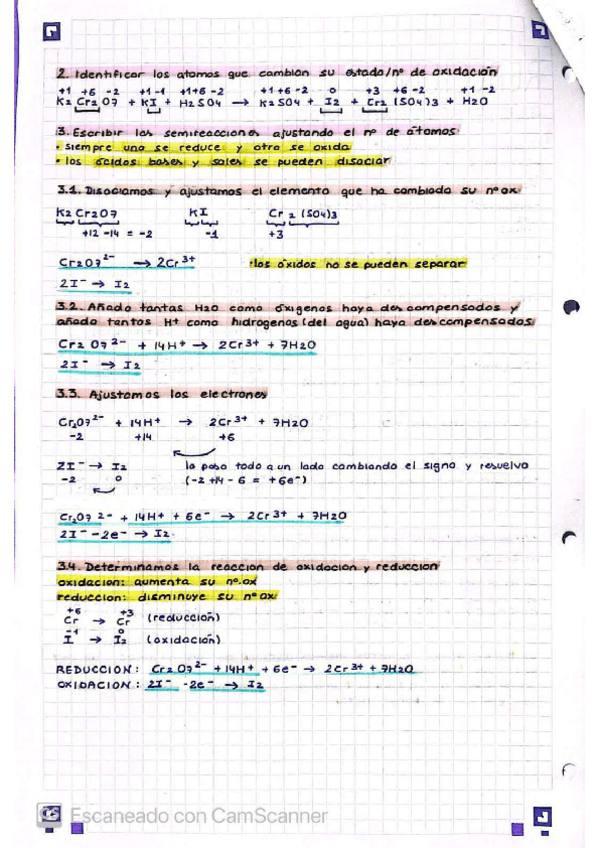 2. Identificar los atomos que cambian su estado/nº de oxidación
+1 +6 -2 +1 -1 +1+6 -2 +1 +6 -2 0 +3 +6 -2 +1 -2
K2 Cr2 O7 + KI + H2SO4 → K2SO4 + I2 + Cr2 (SO4)3 + H2O
3. Escribir las semireacciones ajustando el nº de átomos:
· siempre uno se reduce y otro se oxida
· los ácidos bases y sales se pueden disociar
3.1. Disociamos y ajustamos el elemento que ha cambiado su nº ox
K2 Cr2O7 KI Cr 2 (SO4)3
+12 -14 = -2 -1 +3
Cr2O7²⁻ → 2Cr³⁺ ·los óxidos no se pueden separar
2I⁻ → I2
3.2. Añado tantas H2O como óxigenos haya descompensados y
añado tantos H⁺ como hidrogenos (del agua) haya descompensados
Cr2 O7²⁻ + 14H⁺ → 2Cr³⁺ + 7H2O
2I⁻ → I2
3.3. Ajustamos los electrones
Cr2O7²⁻ + 14H⁺ → 2Cr³⁺ + 7H2O
-2 +14 +6
2I⁻ → I2 lo paso todo a un lado cambiando el signo y resuelvo
-2 0 (-2 +14 - 6 = +6e⁻)
Cr2O7²⁻ + 14H⁺ + 6e⁻ → 2Cr³⁺ + 7H2O
2I⁻ -2e⁻ → I2
3.4. Determinamos la reaccion de oxidacion y reduccion
oxidacion: aumenta su nº.ox
reduccion: disminuye su nº ox
+6 +3
Cr → Cr (reducción)
-1 0
I → I2 (oxidación)
REDUCCION: Cr2 O7²⁻ + 14H⁺ + 6e⁻ → 2Cr³⁺ + 7H2O
OXIDACION: 2I⁻ -2e⁻ → I2
CS Escaneado con CamScanner